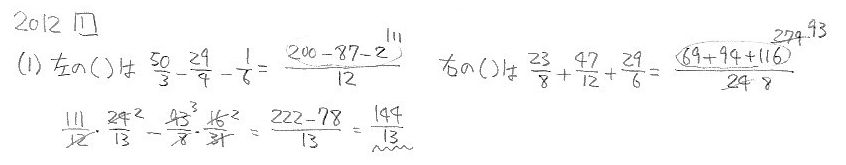 2012 [1]
(1) 左の( )は 50/3 - 29/4 - 1/6 = (200-87-2)/12 111 右の( )は 23/8 + 47/12 + 29/6 = (69+94+116)/24 8 279 93
111/12 · 24/13 2 - 93/8 3 · 16/31 2 = (222-78)/13 = 144/13